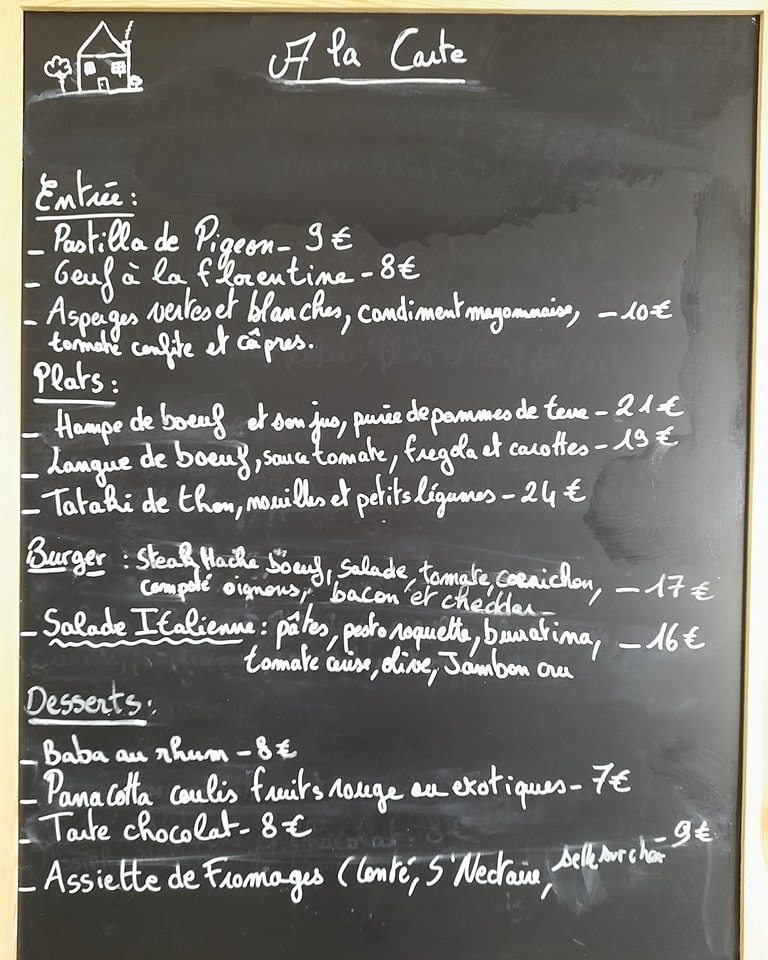 A la Carte
Entrée :
- Pastilla de Pigeon - 9 €
- Oeuf à la florentine - 8 €
- Asperges vertes et blanches, condiment mayonnaise, - 10 €
tomate confite et câpres.
Plats :
- Hampe de boeuf et son jus, purée de pommes de terre - 21 €
- Langue de boeuf, sauce tomate, fregola et carottes - 19 €
- Tataki de thon, nouilles et petits légumes - 24 €
Burger : Steak Haché Boeuf, Salade, tomate, cornichon, - 17 €
compoté oignons, bacon et cheddar -
- Salade Italienne : pâtes, pesto roquette, burratina, - 16 €
tomate cerise, olive, Jambon cru
Desserts :
- Baba au rhum - 8 €
- Panacotta coulis fruits rouge ou exotiques - 7 €
- Tarte chocolat - 8 €
- Assiette de Fromages (Conté, S'Nectaire, selle sur cher - 9 €